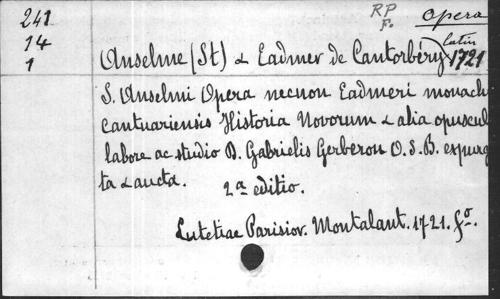 241
14
1
RP
F.
Opera
latin
Anselme (St) & Eadmer de Cantorbéry 1721
S. Anselmi Opera necnon Eadmeri monach
cantuariensis Historia Novorum & alia opuscul
labore ac studio D. Gabrielis Gerberon O.S.B. expurg
ta & aucta. 2a editio.
Lutetiae Parisior. Montalant. 1721. fo.